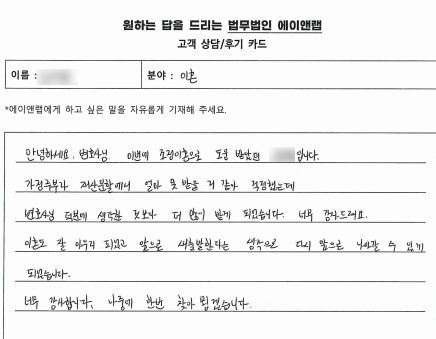 원하는 답을 드리는 법무법인 에이앤랩
고객 상담/후기 카드
이름 :
분야 : 이혼
*에이앤랩에게 하고 싶은 말을 자유롭게 기재해 주세요.
안녕하세요. 변호사님 이번에 조정이혼으로 도움 받았던 입니다.
가정주부라 재산분할에서 얼마 못 받을 거 같아 걱정했는데
변호사님 덕분에 생각한 것보다 더 많이 받게 되었습니다. 너무 감사드려요.
이혼도 잘 마무리 되었고 앞으로 새출발한다는 생각으로 다시 앞으로 나아갈 수 있게
되었습니다.
너무 감사합니다, 나중에 한번 찾아 뵙겠습니다.